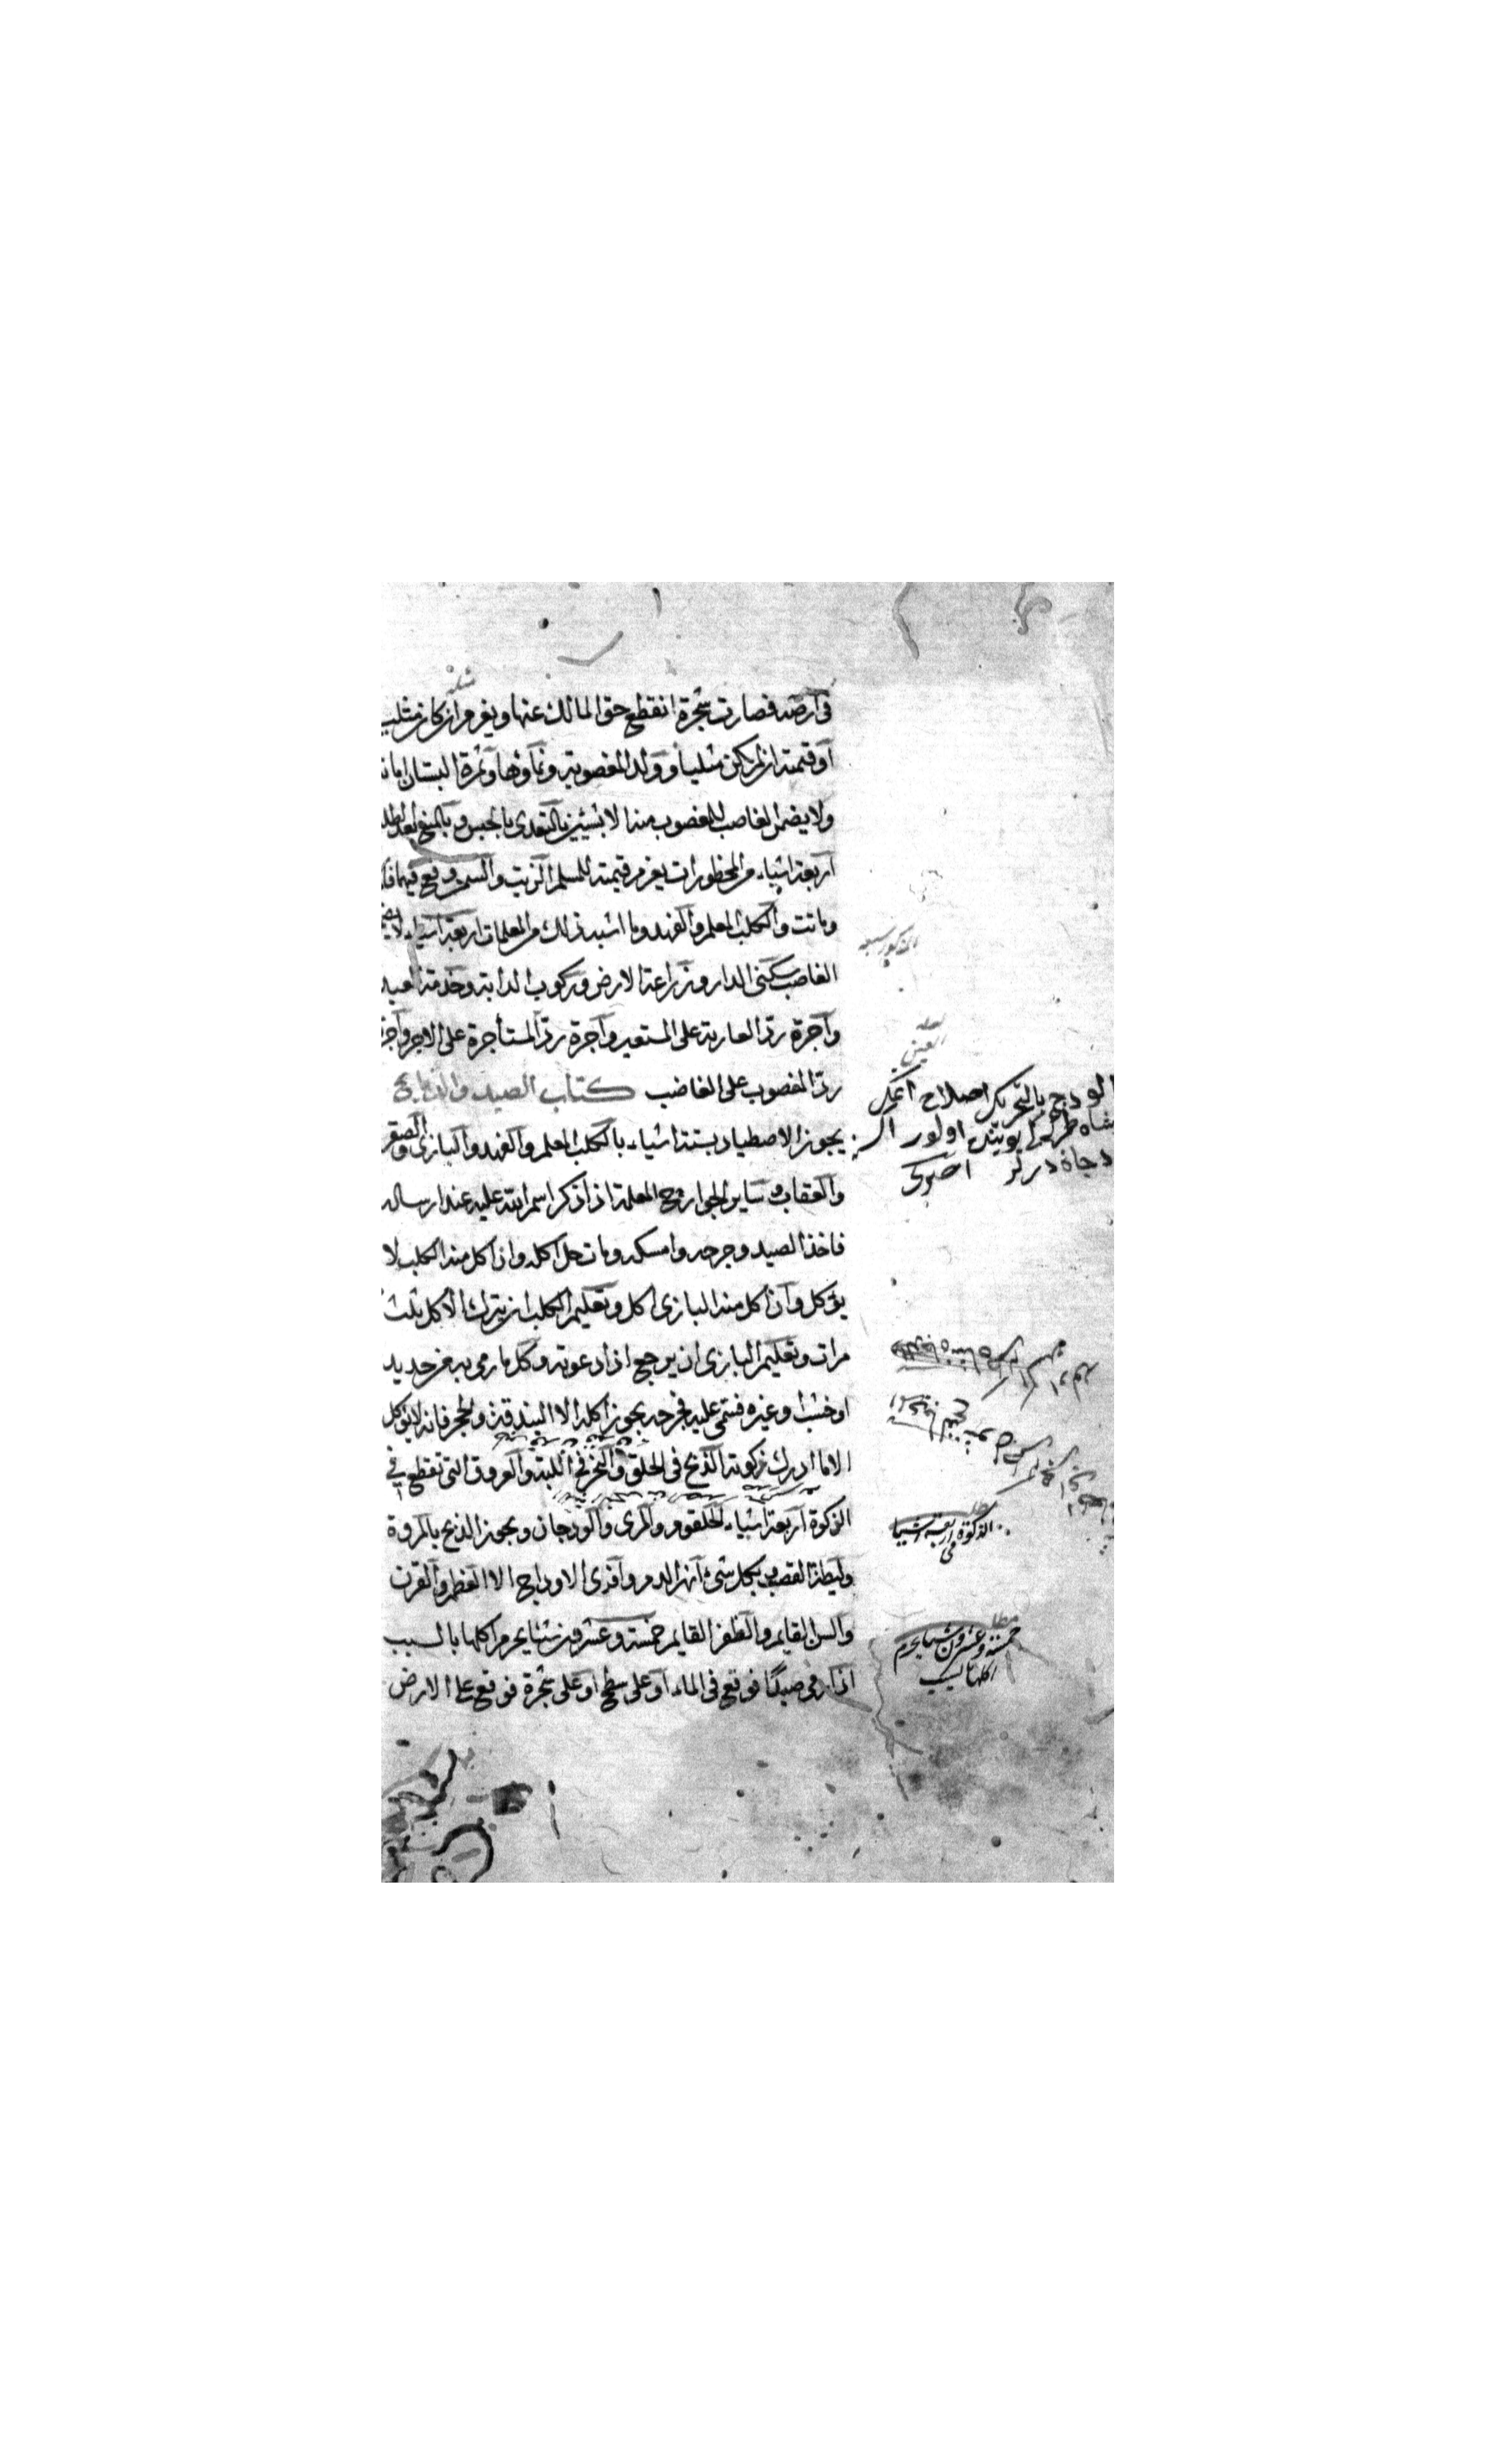 في ارضه فصارت شجرة انقطع حق المالك عنها ويغرم ان كان مثليا
او قيمته ان لم يكن مثليا وولد المغصوبة ونماؤها وثمرة البستان امانة
ولا يضمن الغاصب المغصوب منه الا بشيئين بالتعدي بالحبس وبالمنع بعد الطلب
اربعة اشياء من المحظورات يغرم قيمته للمسلم الزيت والسمن وقع فيها
وماتت والكلب المعلم والفهد وما اشبه ذلك من المعلمات اربعة اشياء لا يضمن
الغاصب سكنى الدار وزراعة الارض وركوب الدابة وخدمة العبد
واجرة رد العارية على المستعير واجرة رد المستأجرة على الاجر واجرة
رد المغصوب على الغاضب كتاب الصيد والذبايح
يجوز الاصطياد بستة اشياء بالكلب المعلم والفهد والبازى والصقر
والعقاب و ساير الجوارح المعلمة اذا ذكر اسم الله عليه عند ارساله
فاخذ الصيد وجرحه وامسكه ومات حل اكله وان اكل منه الكلب لا
يؤكل وان اكل منه البازى اكل وتعليم الكلب ان يترك الاكل ثلث
مرات وتعليم البازى ان يرجع اذا دعوته وكل ما رمى به من حديد
او خشب او غيره فسمى عليه فجرحه يجوز اكله الا البندقة والحجر فانه لا يؤكل
الا ما ادرك زكوته الذبح فى الحلق والنحر في اللبة والعروق التى تقطع في
الزكوة اربعة اشياء الحلقوم والمرى والودجان ويجوز الذبح بالمروة
وليطة القصب وبكل شئ انهر الدم وافرى الاوداج الا العظم والقرن
والسن القايم والظفر القايم خمسة وعشرون شئيا يحرم اكلها بالسبب
اذا رمى صيدا فوقع فى الماء او على سطح او على شجرة فوقع على الارض
الودج بالتحريك اصلاح
مطلب
الذكوة اربعة اشيا
فى
مطلب
خمسة وعشرون شيا يحرم
اكلها بالسبب